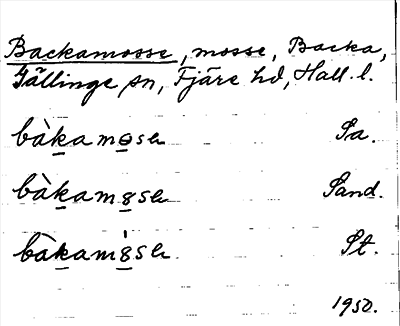 Backamosse, mosse, Backa,
Gällinge sn, Fjäre hd, Hall. l.
bàkamosɘ Sa.
bàkam8sɘ Sand.
bàkam8̀sɘ St.
1950.